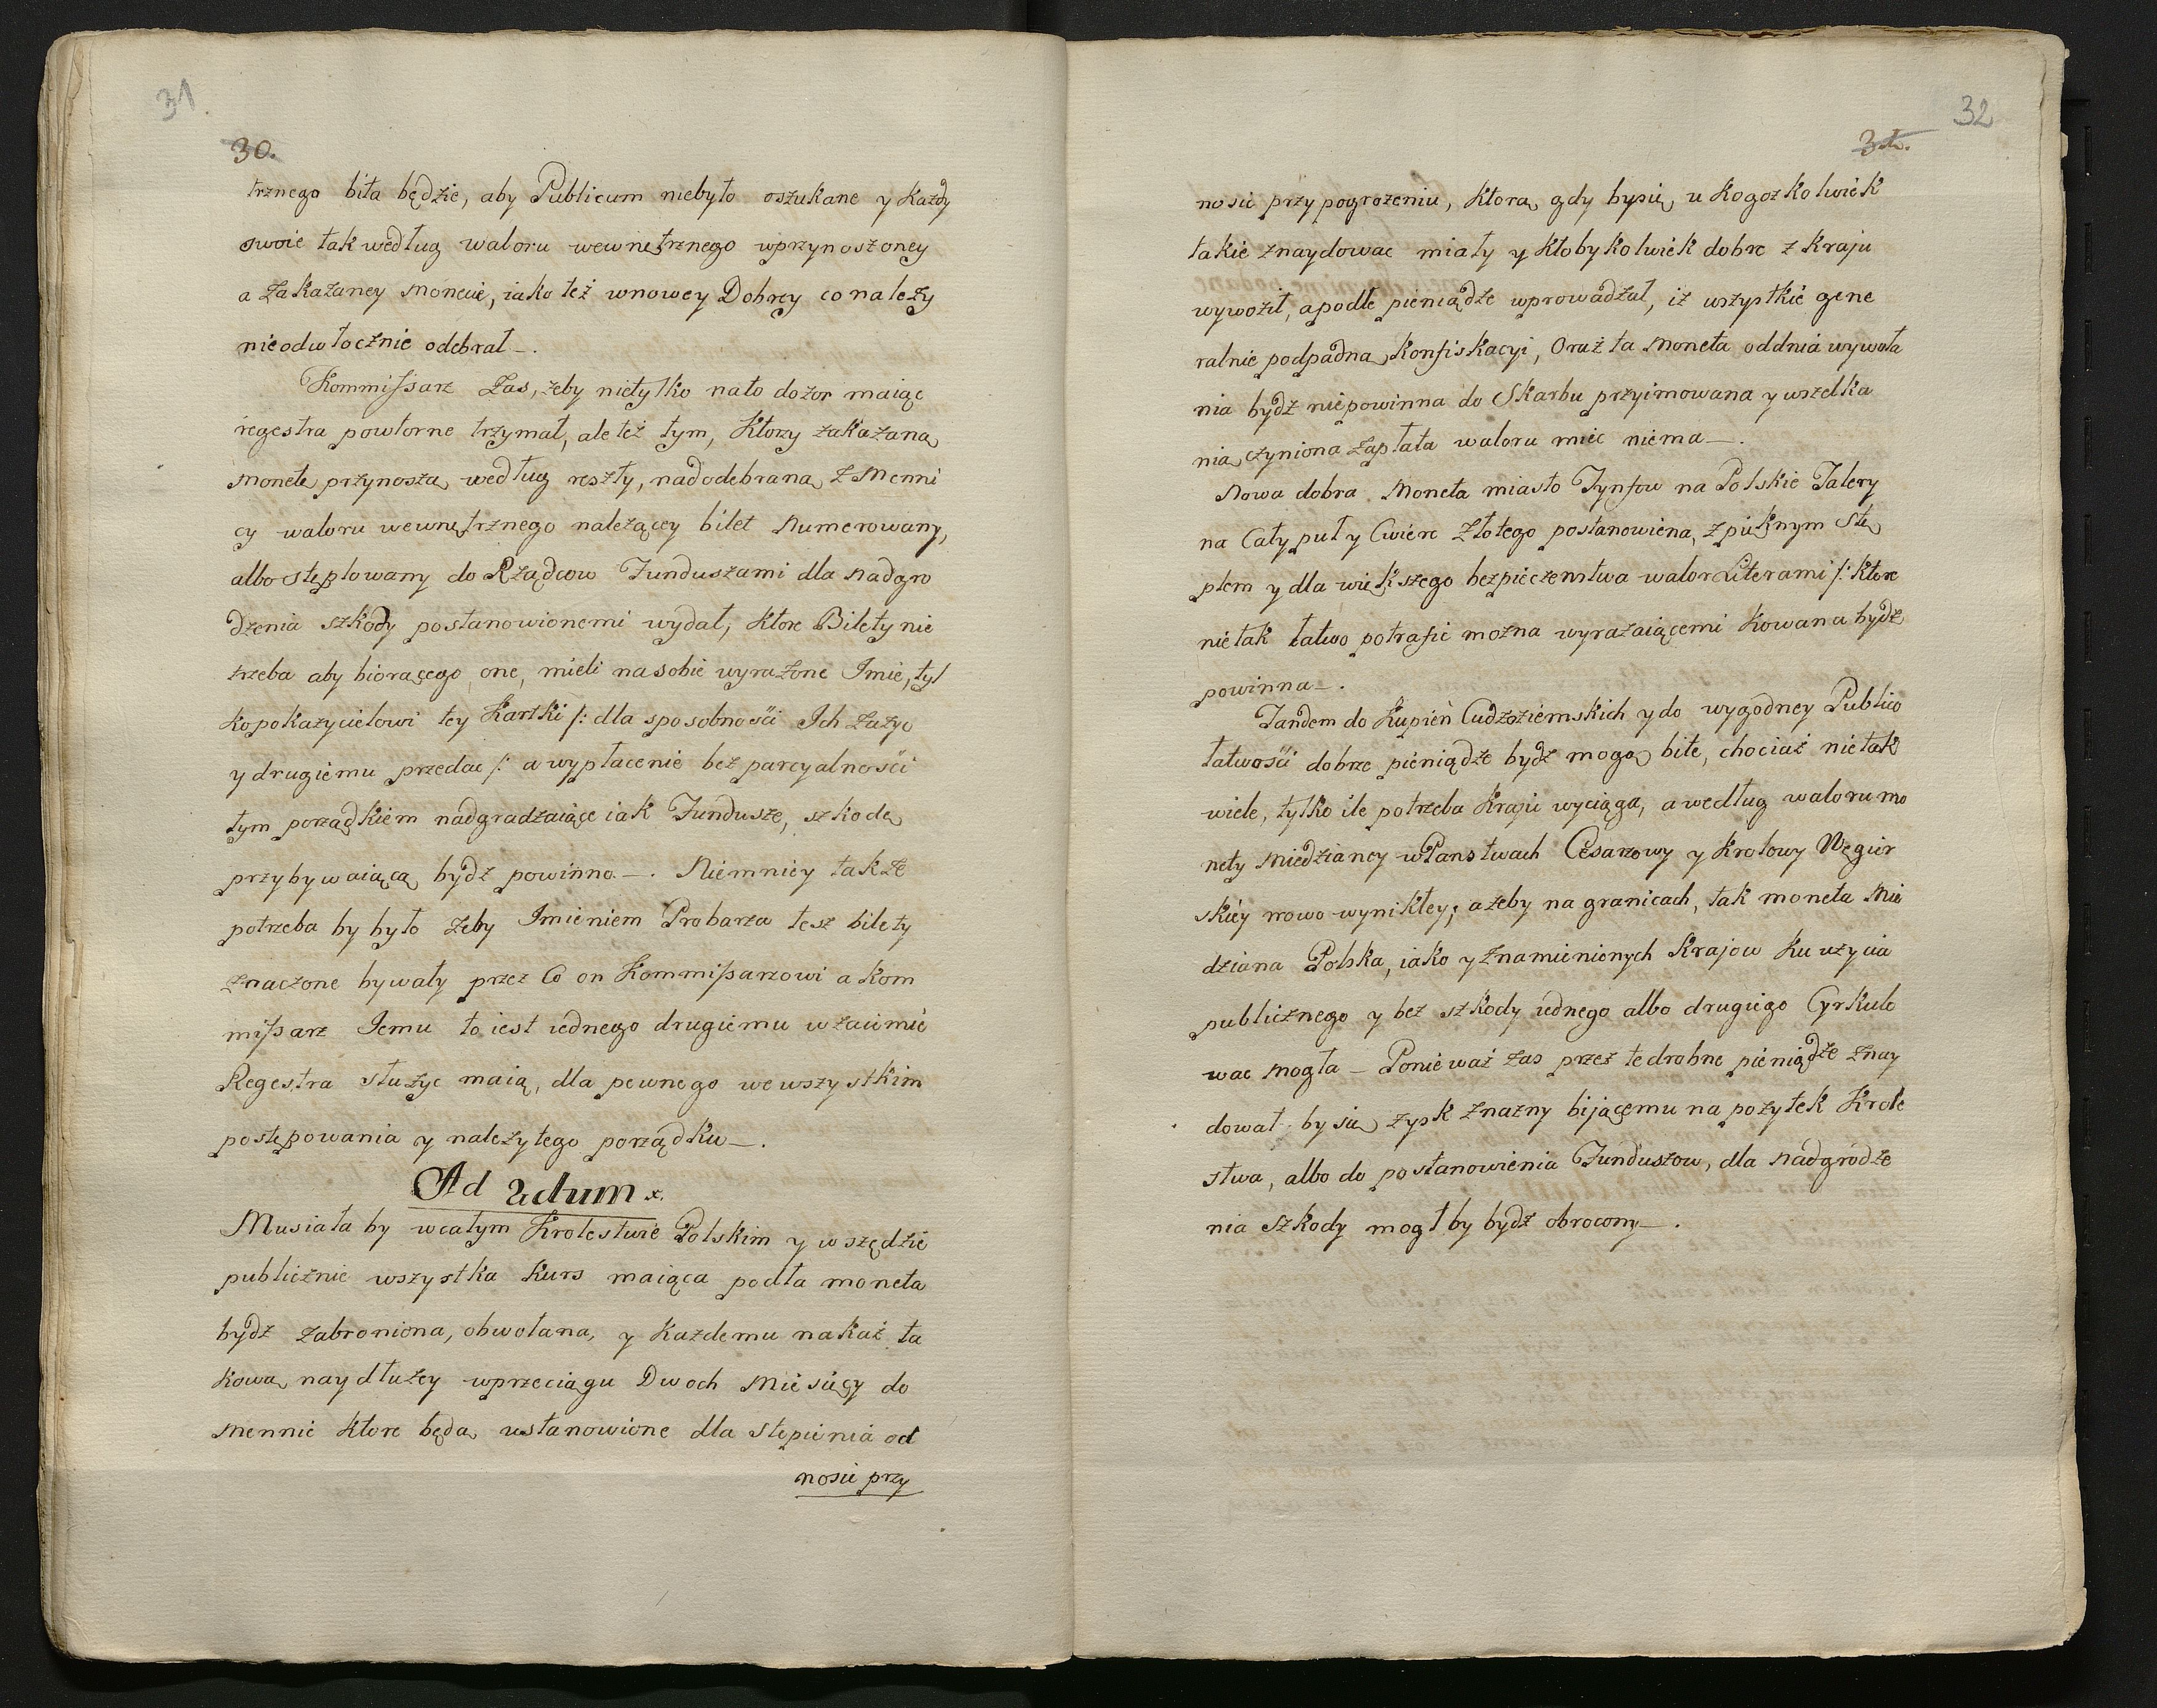 31.
30.
trznego biła będzie, aby Publicum niebyło oszukane y każdy
swoie tak według waloru wewnętrznego wprzynoszoney
a zakazaney Monecie, iako też wnowey Dobrey co należy
nieodwłocznie odebrał_.
Kommissarz zas, żeby nietylko nato dozor maiąc
regestra powtorne trzymał, ale też tym, ktorzy zakazaną
Monetę przynoszą, według reszty, nad odebraną z Menni
cy waloru wewnętrznego należącey bilet Numerowany,
albo stęplowany do Rządcow Funduszami dla Nadgro
dzenia szkody postanowionemi wydał, ktore Bilety nie
trzeba aby biorącego one, mieli na sobie wyrażone Imie, tyl
ko pokazycielowi tey Kartki /: dla sposobności Ich zażyc
y drugiemu przedac /: a wypłacenie bez parcyalności
tym porządkiem nadgradzaiące iak Fundusze, szkodę
przybywaiącą bydź powinno_. Niemniey także
potrzeba by było żeby Imieniem Probarza tesz bilety
znaczone bywały przez Co on Kommissarzowi a Kom
missarz Jemu to iest iednego drugiemu wzaiemie
Regestra służyc maią, dla pewnego we wszystkim
postępowania y należytego porządku_.
Ad 2dum x.
Musiała by wcałym Krolestwie Polskim y wszędzie
publicznie wszystka kurs maiąca podła moneta
bydź zabroniona, obwołana, y każdemu nakaż ta
kową naydłużey wprzeciągu Dwoch Miesięcy do
Mennic ktore będą ustanowione dla stępienia od
nosic przy
32
31.
nosic przy pogrożeniu, ktorą gdy bysię u kogożkolwiek
takie znaydowac miały y ktobykolwiek dobre z kraju
wywoził, a podłe pieniądze wprowadzał, iż wszystkie gene
ralnie podpadną Konfiskacyi, Oraz ta Moneta od dnia wywoła
nia bydź niepowinna do Skarbu przyimowana y wszelka
nią czyniona zapłata waloru miec niema_.
Nowa dobra Moneta miasto Tynfow na Polskie Talery
na Cały puł y Cwierc Złotego postanowiena, z pięknym stę
plem y dla większego bezpieczenstwa walor Literami /: ktore
nie tak łatwo potrafic można wyrażaiącemi kowana bydź
powinna_.
Tandem do Kupień Cudzoziemskich y do wygodney Publico
łatwości dobre pieniądze bydź mogą bite, chociaż nie tak
wiele, tylko ile potrzeba Kraju wyciąga, a według waloru mo
nety Miedzianey w Panstwach Cesarzowy y Krolowy Węgier
skiéy nowo wynikłey; ażeby na granicach, tak moneta Mie
dziana Polska, iako y znamienionych Krajow ku użycia
publicznego y bez szkody iednego albo drugiego Cyrkulo
wac mogła _ Ponieważ zas przez te drobne pieniądze znay
dował by się zysk znazny bijącemu na pożytek Krole
stwa, albo do postanowienia Funduszow, dla Nadgródze
nia szkody mogł by bydź obrocony_.